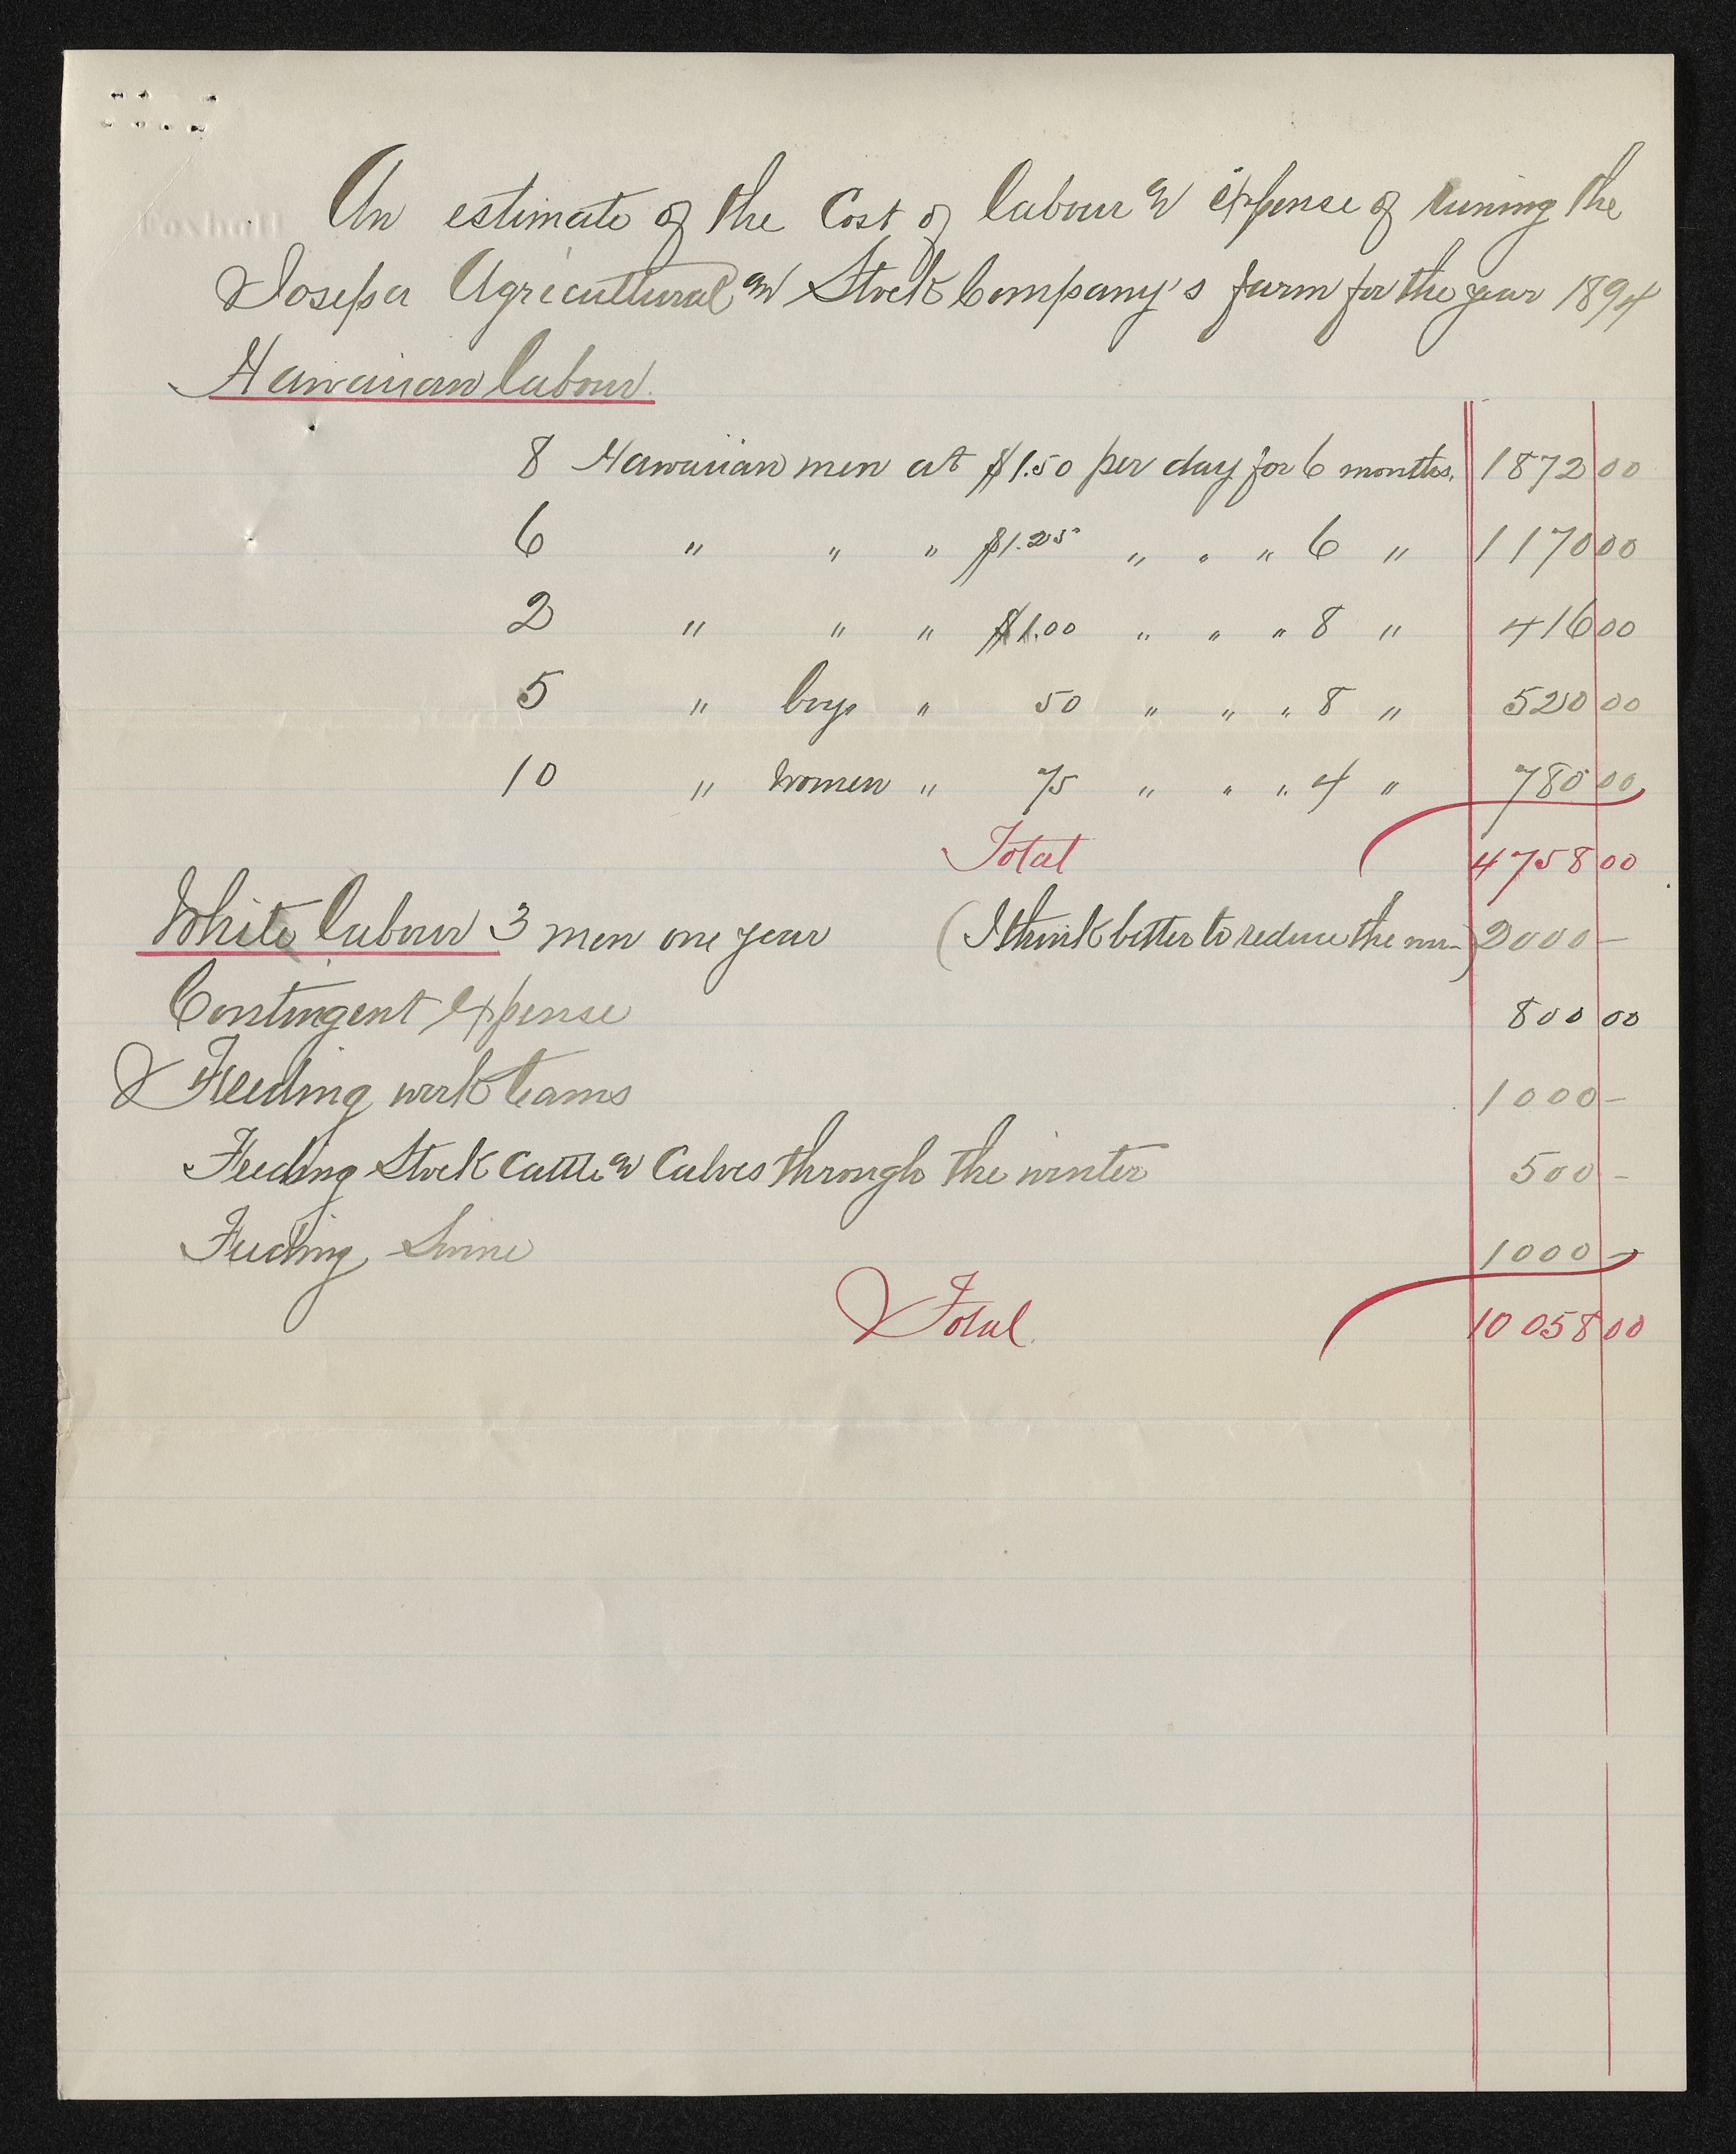 An estimate of the Cost of labour & expense of runing the
Iosepa Agricultural and Stock Company's farm for the year 1894
Hawaiian labour.
8 Hawaiian men at $1.50 per day for 6 months. 1872 00
6 " " " $1.25 " " " 6 " 1170 00
2 " " " $1.00 " " " 8 " 416 00
5 " boys " 50 " " " 8 " 520 00
10 " women " 75 " " " 4 " 780 00
Total 4758 00
White labour 3 men one year (I think better to reduce the nu-) 2000 –
Contingent expense 800 00
Feeding work teams 1000 –
Feeding Stock Cattle & Calves through the winter 500 –
Feeding Swine 1000 –
Total 10058 00